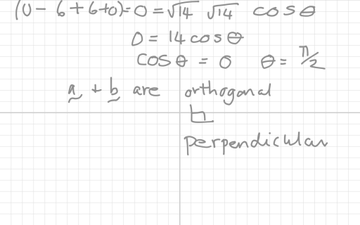 (0 - 6 + 6 + 0) = 0 = √14 √14 cos θ
0 = 14 cos θ
cos θ = 0 θ = π/2
a + b are orthogonal
perpendicular